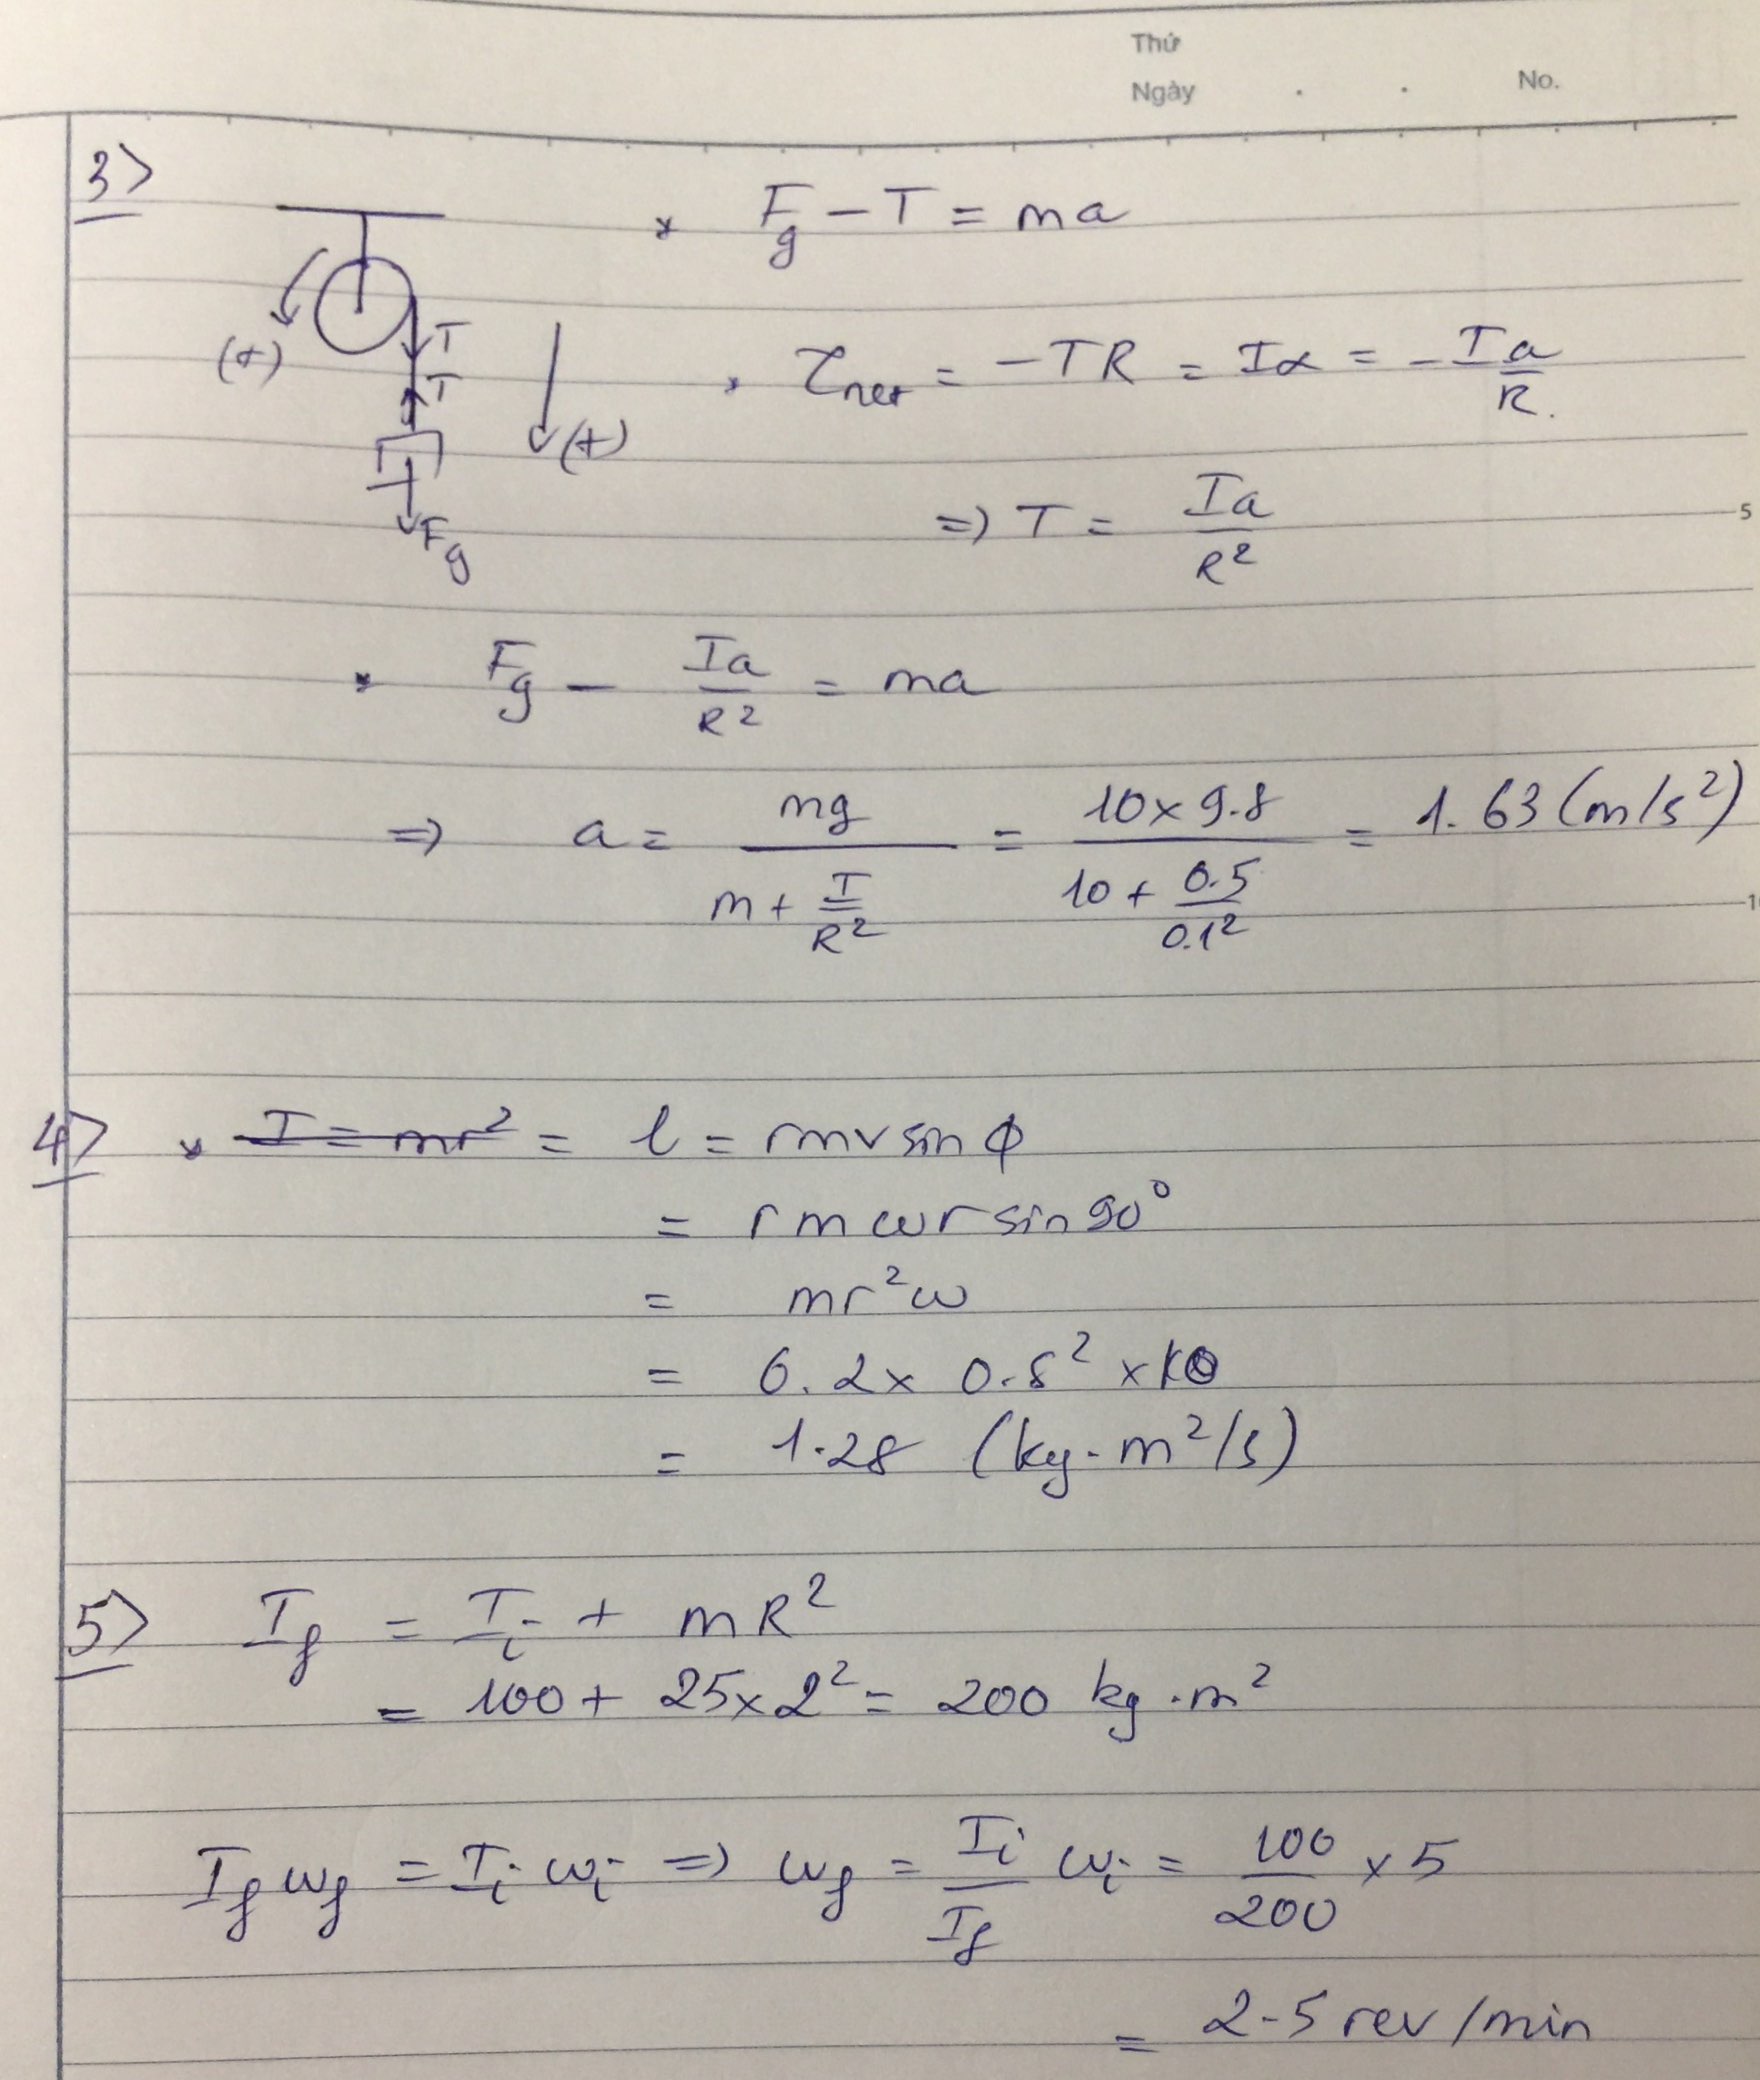 Thứ
Ngày . . No.
3>
* Fg - T = ma
(+) T
T
(+)
Fg
* τnet = -TR = Iα = - Ia/R.
=> T = Ia/R²
5
* Fg - Ia/R² = ma
=> a = mg/(m + I/R²) = (10 x 9.8)/(10 + 0.5/0.1²) = 1.63 (m/s²)
4> * I = mr² = l = rmv sin ϕ
= rmωr sin 90°
= mr²ω
= 0.2 x 0.8² x 10
= 1.28 (kg.m²/s)
5> If = Ii + mR²
= 100 + 25x2² = 200 kg.m²
If ωf = Ii ωi => ωf = Ii/If ωi = 100/200 x 5
= 2.5 rev/min